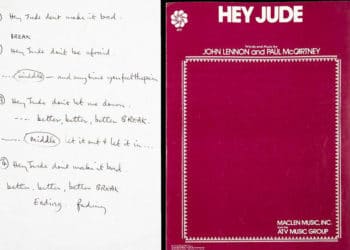 Hey Jude don't make it bad.
BREAK
Hey Jude don't be afraid.
..... middle — and anytime you feel the pain
Hey Jude don't let me down.
---- better, better, better BREAK.
----- middle let it out & let it in...
4 Hey Jude don't make it bad
better, better, better BREAK
Ending. fading
HEY JUDE
Words and Music by
JOHN LENNON and PAUL McCARTNEY
MACLEN MUSIC, INC.
ATV MUSIC GROUP